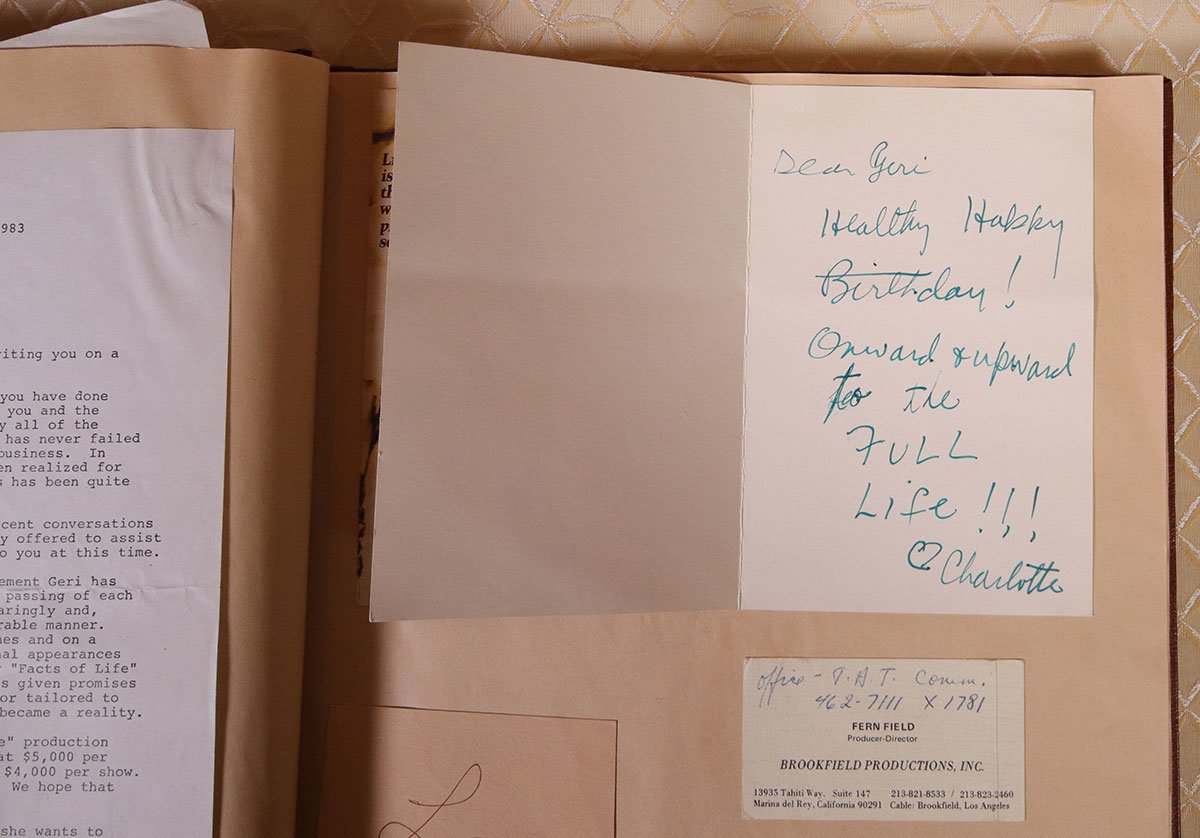 983
riting you on a
you have done
you and the
y all of the
has never failed
business. In
en realized for
s has been quite
cent conversations
y offered to assist
o you at this time.
ement Geri has
passing of each
aringly and,
rable manner.
nes and on a
al appearances
"Facts of Life"
s given promises
or tailored to
became a reality.
e" production
at $5,000 per
$4,000 per show.
We hope that
she wants to
Dear Geri
Healthy Happy
Birthday!
Onward & upward
to the
FULL
Life!!!
♡ Charlotte
office - T.A.T. Comm.
462-7111 X 1781
FERN FIELD
Producer-Director
BROOKFIELD PRODUCTIONS, INC.
13935 Tahiti Way, Suite 147 213-821-8533 / 213-823-2460
Marina del Rey, California 90291 Cable: Brookfield, Los Angeles